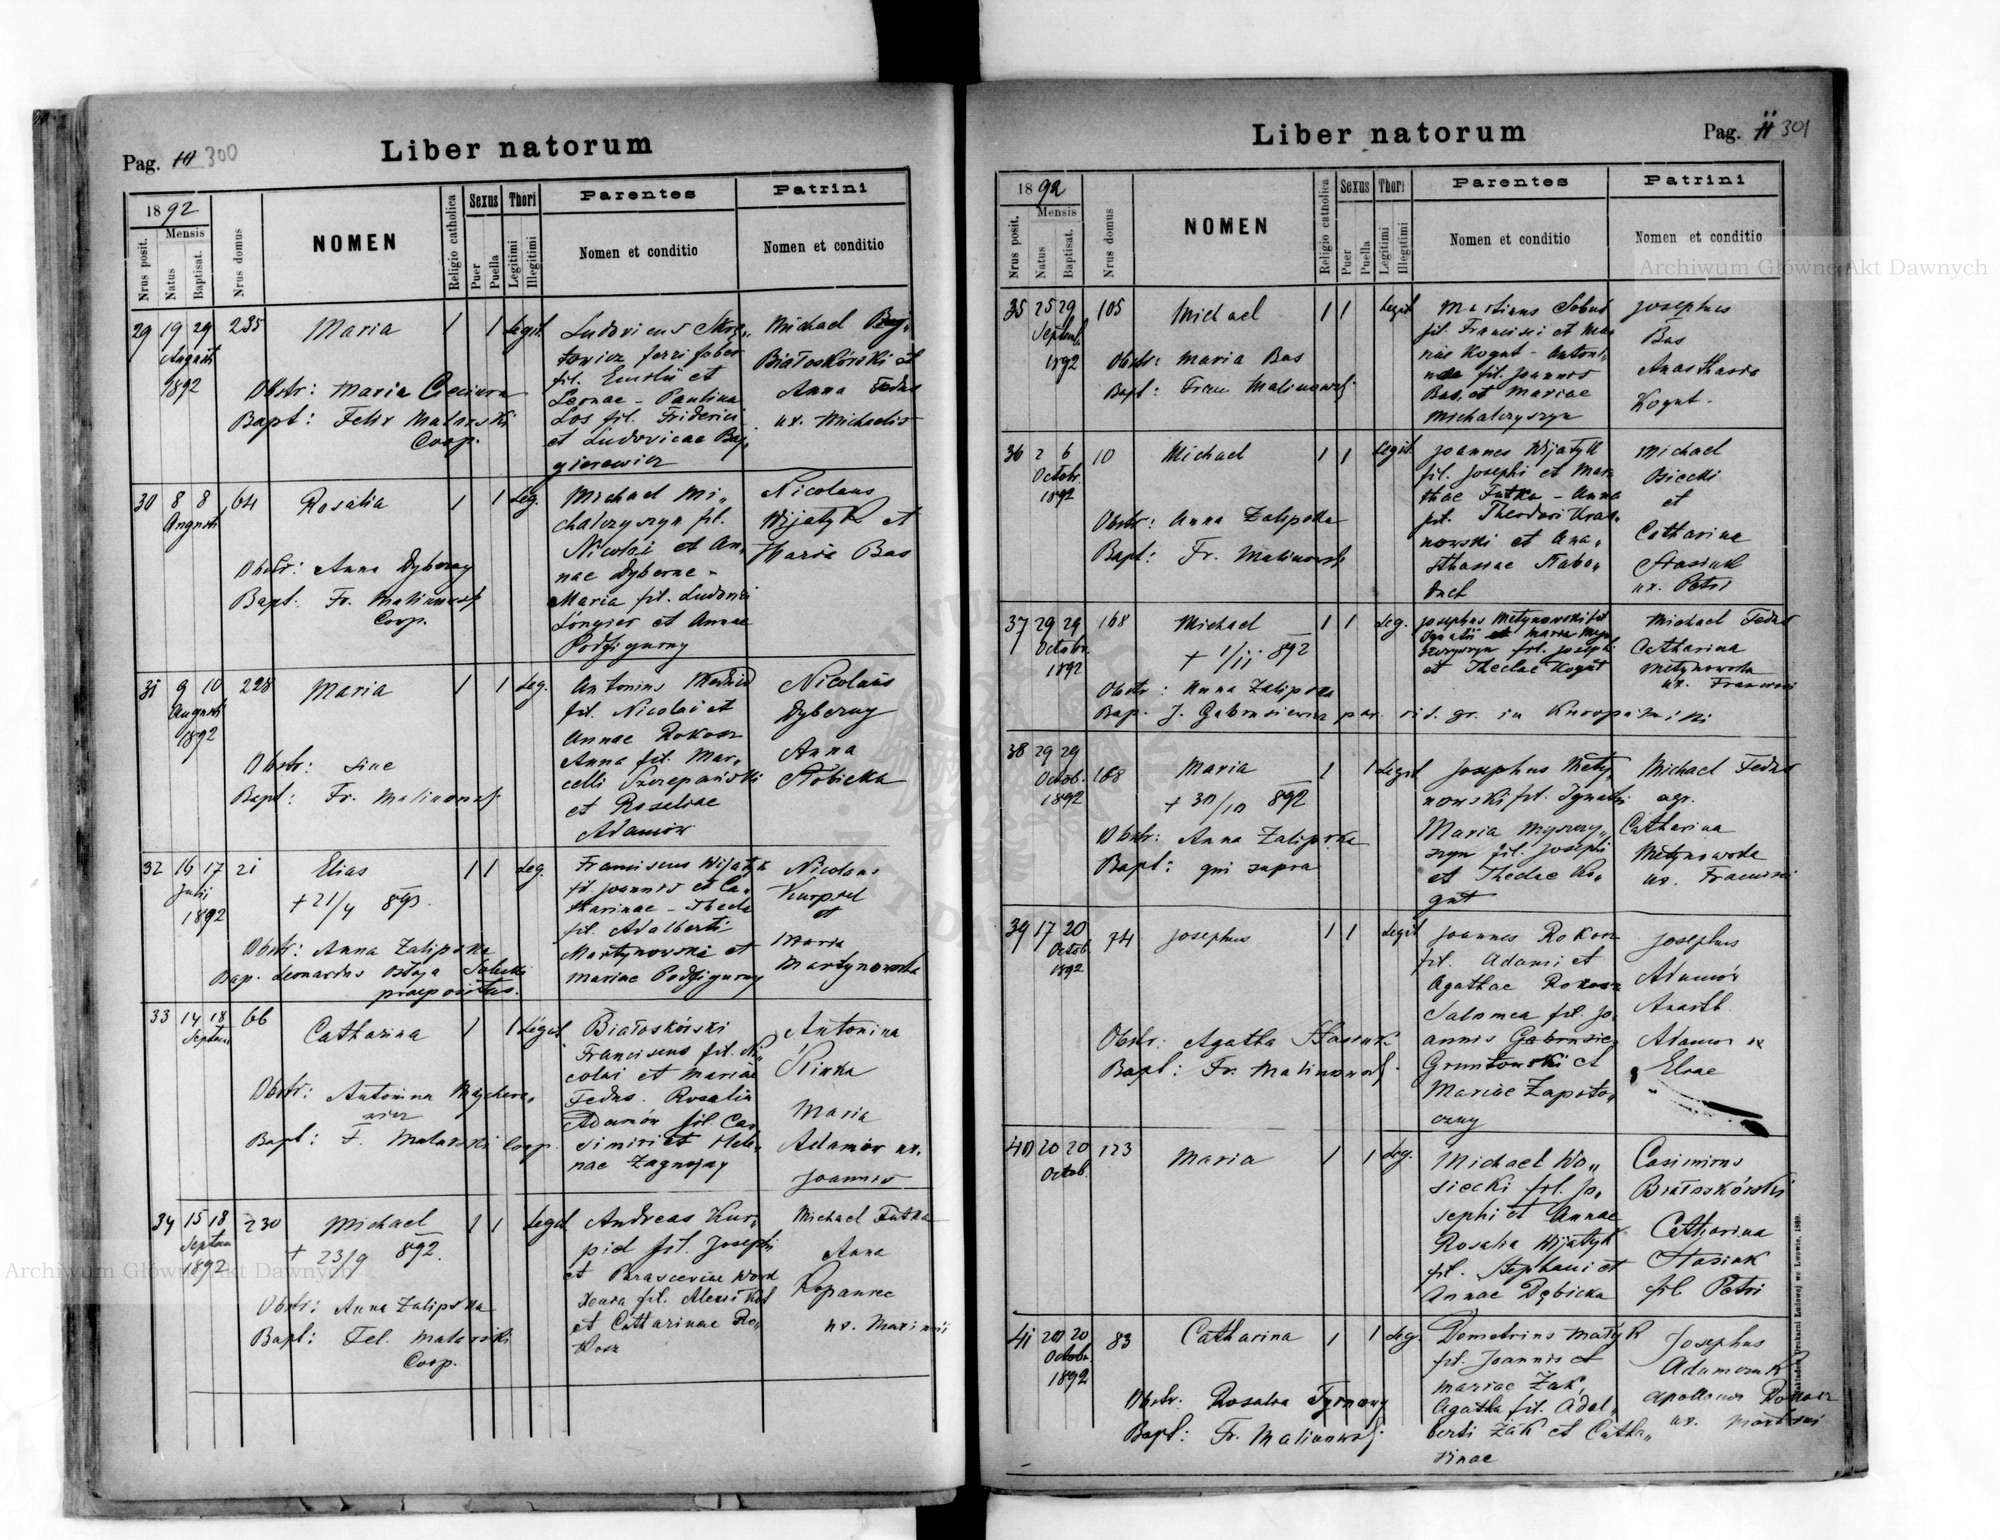 Pag. 300
Liber natorum
1892
Mensis
Nrus posit.
Natus
Baptisat.
Nrus domus
NOMEN
Religio catholica
Sexus
Puer
Puella
Thori
Legitimi
Illegitimi
Parentes
Nomen et conditio
Patrini
Nomen et conditio
29 19 29 235 Maria 1 1 Legit.
Augusti
1892
Obstr: Maria
Bapt: Felix Matawski
Coop.
Ludovicus
towicz ferri faber
fil. Emilii et
Leonae - Paulina
Los fil. Friderici
et Ludovicae Bag„
gierewicz
Michael
Białoskórski et
Anna Fedus
ux. Michaelis
30 8 8 64 Rosalia 1 1 Leg.
Augusti
Obstr: Anna Dyberny
Bapt: Fr. Malinowski
Coop.
Michael Mi„
chalczyszyn fil.
Nicolai et An„
nae Dyberne -
Maria fil. Ludovici
Longier et Annae
Podfigurny
Nicolaus
Wijatyk et
Maria Bas
31 9 10 228 Maria 1 1 Leg.
Augusti
1892
Obstr: sine
Bapt: Fr. Malinowski
Antonius
fil. Nicolai et
Annae Rokosz
Anna fil. Mar„
celli Szczepański
et Rosaliae
Adamów
Nicolaus
Dyberny
Anna
32 16 17 21 Elias 1 1 Leg.
Julii
1892
+ 21/4 893.
Obstr: Anna Zalipska
Bap. Leonardus Ostoja Solecki
praepositus.
Franciscus Wijatyk
fil. Joannis et Ca„
tharinae - Thecla
fil. Adalberti
Martynowski et
Mariae Podfigurny
Nicolaus
Kurpiel
et
Maria
Martynowska
33 14 18 66 Catharina 1 1 Legit.
Septem
Obstr: Antonina
Bapt: F. Matawski Coop.
Białoskórski
Franciscus fil. Ni„
colai et Mariae
Fedus. Rosalia
Adamów fil. Cas„
simiri et Hele„
nae Zagnojny
Antonina
Maria
Adamów ux.
Joannis
34 15 18 230 Michael 1 1 Legit
Septem
1892
+ 23/9 892.
Obstr: Anna Zalipska
Bapt: Fel. Matawski
Coop.
Andreas Kur„
piel fil. Josephi
et Parasceviae
fil. Alexii Kot
et Catharinae Ro„
kosz
Michael Futka
Anna
Kopaniec
ux. Maximii
Liber natorum
Pag. 11 301
1892
Mensis
Nrus posit.
Natus
Baptisat.
Nrus domus
NOMEN
Religio catholica
Sexus
Puer
Puella
Thori
Legitimi
Illegitimi
Parentes
Nomen et conditio
Patrini
Nomen et conditio
35 25 29 105 Michael 1 1 Legit
Septemb.
1892
Obstr: Maria Bas
Bapt: Franc Malinowski
Martinus
fil. Francisci et Ma„
riae Kogut - Antoni„
na fil. Joannis
Bas et Mariae
Michalczyszyn
Josephus
Bas
Anasthasia
Kogut.
36 2 6 10 Michael 1 1 Legit.
Octobr.
1892
Obstr: Anna Zalipska
Bapt: Fr. Malinowski
Joannes Wijatyk
fil. Josephi et Mar
thae Futka - Anna
fil. Theodori Kras„
nowski et Ana„
sthasiae
Michael
Osiecki
et
Catharina
Stasiuk
ux. Petri
37 29 29 168 Michael 1 1 Leg.
Octobr.
1892
+ 1/11 892
Obstr: Anna Zalipska
Bap. J. Gabrusiewicz par. rit. gr. in Kuropatniki
Josephus Metynowski fil
Ignatii et Maria
fil. Josephi
et Theclae Kogut
Michael Fedus
Catharina
Metynowska
ux. Francisci
38 29 29 168 Maria 1 1 Legit
Octob.
1892
+ 30/10 892
Obstr: Anna Zalipska
Bapt: qui supra
Josephus Mety„
nowski fil. Ignatii
Maria Myszczy„
szyn fil. Josephi
et Theclae Ko„
gut
Michael Fedus
agr.
Catharina
Metynowska
ux. Francisci
39 17 20 74 Josephus 1 1 Legit
Octob
1892
Obstr: Agatha Stasiuk
Bapt: Fr. Malinowski
Joannes Rokosz
fil. Adami et
Agathae Rokosz
Salomea fil. Jo„
annis
Gruntowski et
Mariae Zapoto„
czny
Josephus
Adamów
Anasth.
Adamów ux
Eliae
40 20 20 123 Maria 1 1 Leg.
Octob.
Michael Wo„
siecki fil. Jo„
sephi et Annae
Rosalia Wijatyk
fil. Stephani et
Annae Dębicka
Casimirus
Białoskórski
Catharina
Stasiuk
fil Petri
41 20 20 83 Catharina 1 1 Leg.
Octobr.
1892
Obstr: Rosalia
Bapt: Fr. Malinowski
Demetrius Matyk
fil. Joannis et
Mariae Żak,
Agatha fil. Adal„
berti Żak et Catha„
rinae
Josephus
Adamczuk
Apollonia Rokosz
ux. Martini
Nakładem Drukarni Ludowej we Lwowie. 1889.
Archiwum Główne Akt Dawnych
Archiwum Główne Akt Dawnych